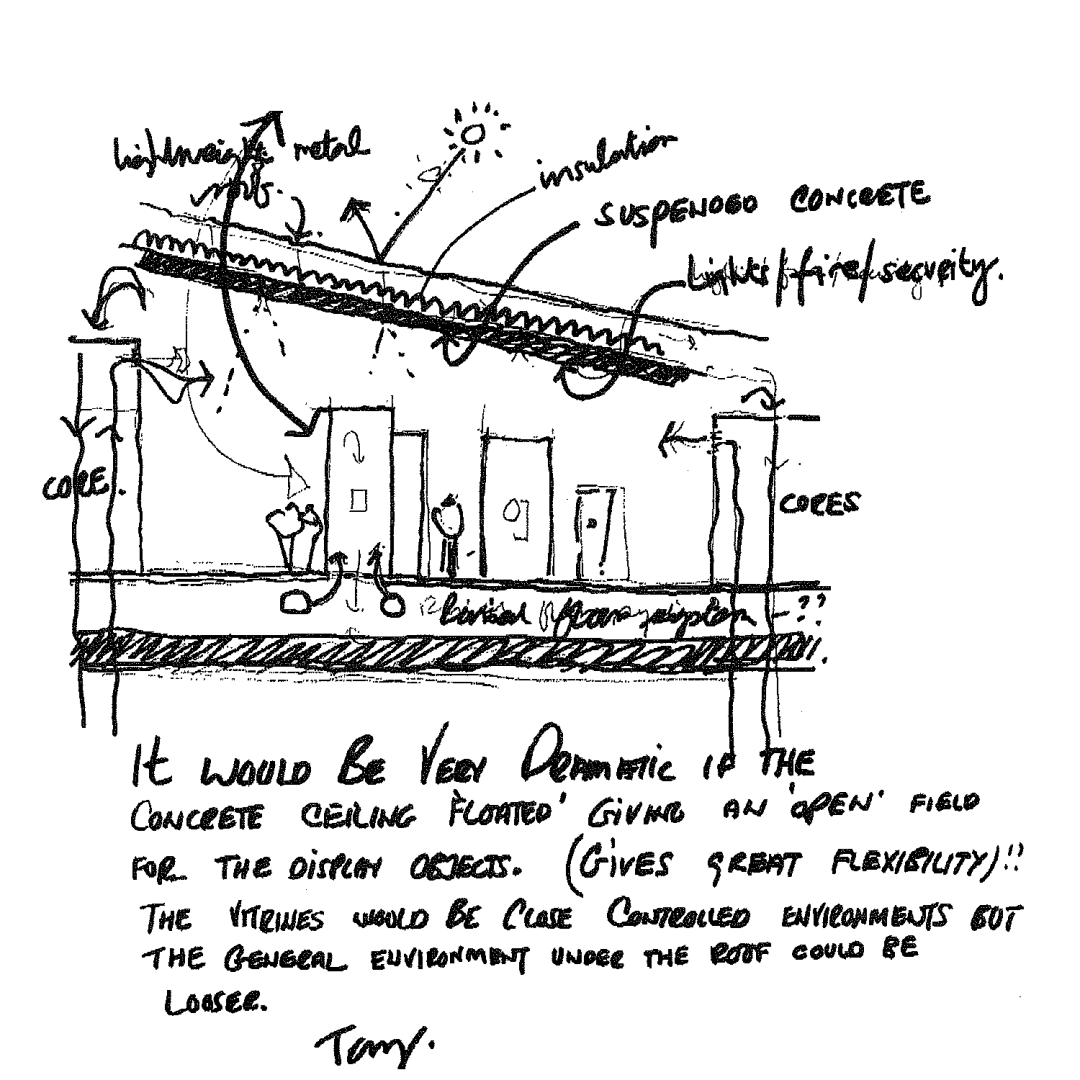 lightweight metal
roof.
insulation
SUSPENDED CONCRETE
Lights/fire/security.
CORE.
CORES
??
IT WOULD BE VERY DRAMATIC IF THE
CONCRETE CEILING 'FLOATED' GIVING AN 'OPEN' FIELD
FOR THE DISPLAY OBJECTS. (GIVES GREAT FLEXIBILITY)!!
THE VITRINES WOULD BE CLOSE CONTROLLED ENVIRONMENTS BUT
THE GENERAL ENVIRONMENT UNDER THE ROOF COULD BE
LOOSER.
Tony.